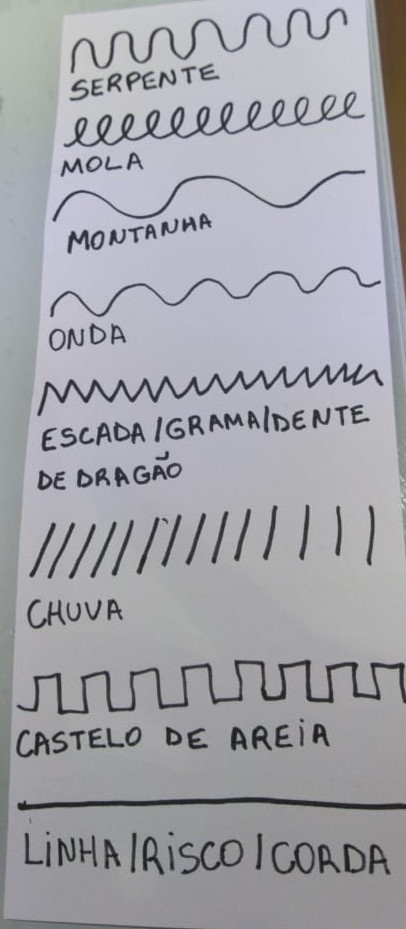 SERPENTE
MOLA
MONTANHA
ONDA
ESCADA/GRAMA/DENTE
DE DRAGÃO
CHUVA
CASTELO DE AREiA
LiNHA/RiSCO/CORDA